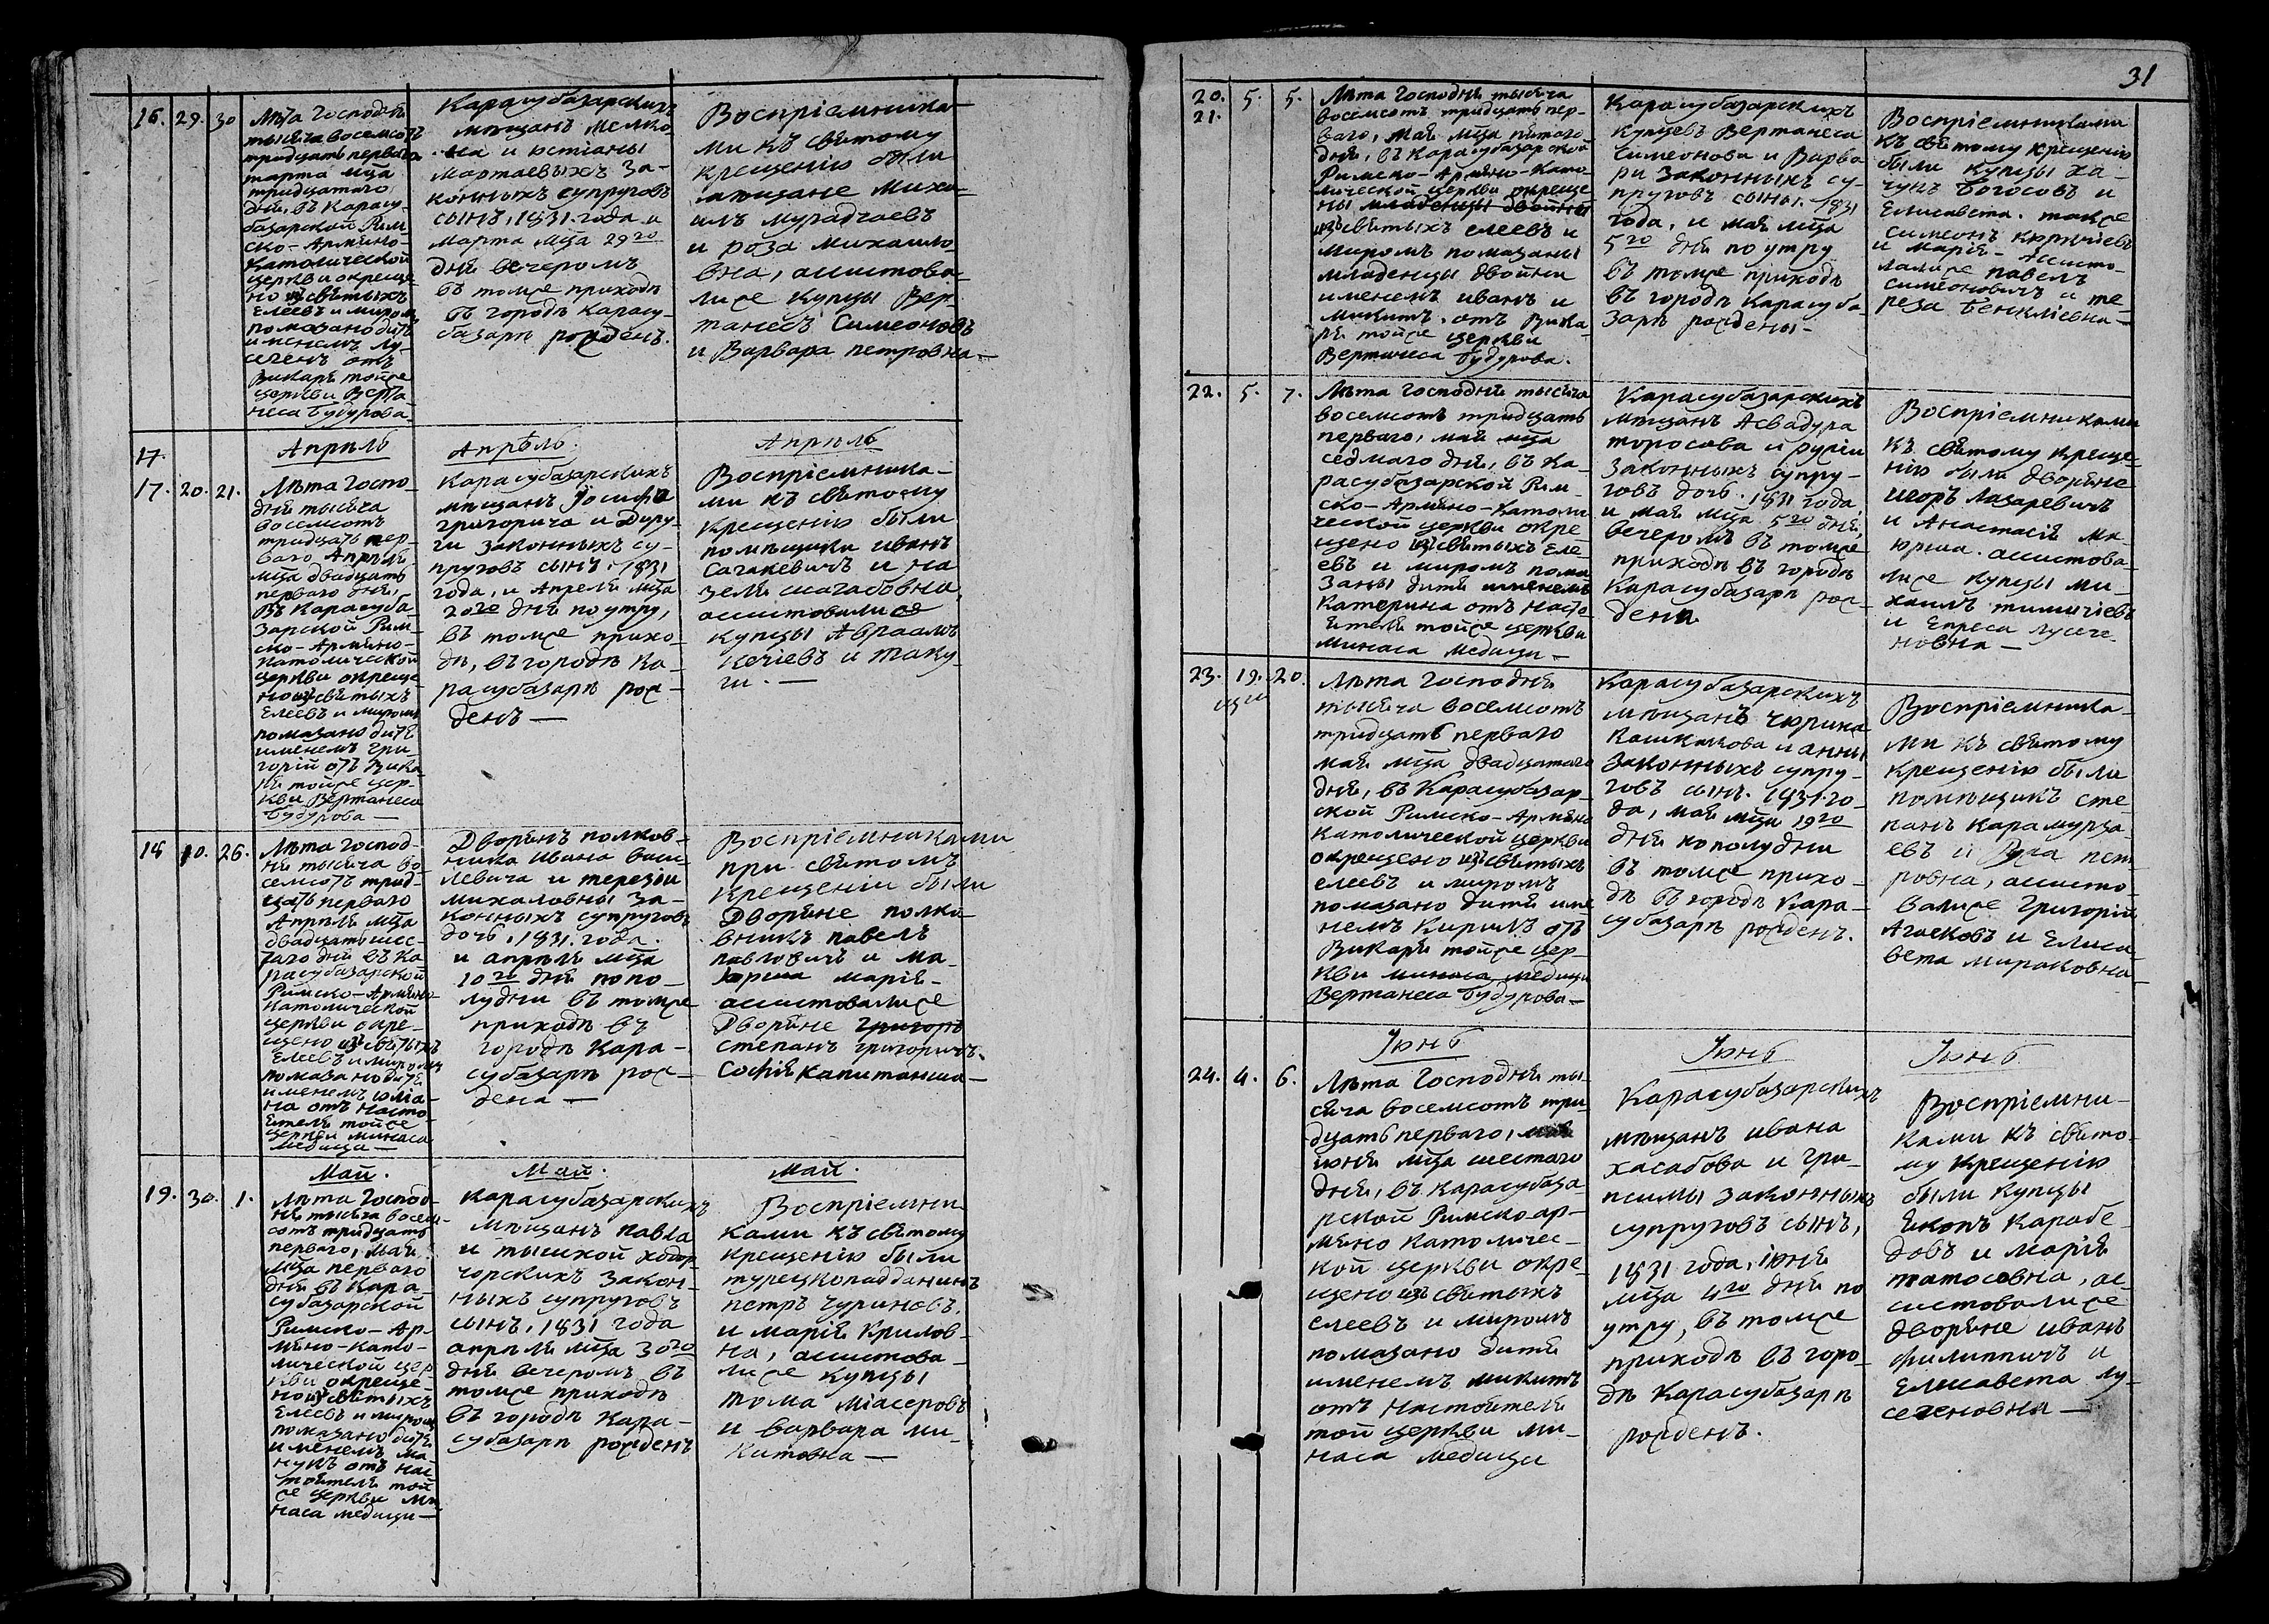 16. 29. 30
Лѣта Господнѣ
тысѣча восемсотъ
тридцать перваго
марта мца
тридцатаго
дня, въ Карасу-
базарской Рим-
ско-Армѣно-
Католической
церкви окреще-
но изъ свѣтыхъ
Елеевъ и миромъ
помазано дитѣ
именемъ Лу-
сегенъ отъ
Викарѣ тойже
церкви Верта-
неса Будурова
Карасубазарскихъ
мѣщанъ Мелко-
на и юстіаны
Мартаевыхъ За-
конныхъ супруговъ
сынъ, 1831. года и
Марта мца 29го
дня вечеромъ
въ томже приходѣ
въ городѣ Карасу-
базарѣ рожденъ.
Воспріемника-
ми къ свѣтому
крещенію были
мѣщане Миха-
илъ мурадчаевъ
и роза михаило
вна, асистова-
лисе Купцы Вер-
танесъ Симеоновъ
и Варвара петровна—
17.
Апрѣль
Апрѣль.
Апрѣль
17. 20. 21.
Лѣта Госпо-
дня тысѣча
восемсотъ
тридцать пер-
ваго Апрѣля
мца двадцать
перваго дня,
въ Карасуба-
зарской Рим-
ско-Армѣно-
католической
церкви окреще-
но изъ свѣтыхъ
Елеевъ и миромъ
помазано дитѣ
именемъ Гри-
горій отъ Вика-
рѣ тойже цер-
кви Вертанеса
Будурова—
Карасубазарскихъ
мѣщанъ Іосифа
григорича и Диру-
ги законныхъ су-
пруговъ сынъ. 1831
года, и Апрелѣ мца
20го днѣ поутру,
въ томже прихо-
дѣ, въ городѣ Ка-
расубазарѣ рож-
денъ—
Воспріемника-
ми къ свѣтому
Крещенію были
помѣщики иванъ
Сагакевичъ и на
зелѣ
асистовалисе
купцы Авраамъ
кечіевъ и таку-
ги.—
18 10. 26.
Лѣта Господ-
нѣ тысѣча во-
семсотъ трид-
цать перваго
Апрѣлѣ мца
двадцать шес-
таго днѣ въ Ка
расубазарской
Римско-Армѣно-
католической
церкви окре-
щено изъ свѣтыхъ
Елеевъ и миромъ
помазано дитѣ
именемъ юліа-
на отъ насто-
ѣтелѣ тойже
церкви минаса
Медици—
Дворѣнъ полков-
ника ивана васи-
левича и терезіи
михаловны за-
конныхъ супруговъ
дочь, 1831. года.
и апрѣлѣ мца
10го днѣ попо-
лудни въ томже
приходѣ въ
городѣ Кара-
субазарѣ рож-
дена—
Воспріемниками
при свѣтомъ
Крещеніи были
Дворѣне полко-
вникъ павелъ
павловичъ и ма-
іорша марія-
асистовалисе
Дворѣне григоръ
степанъ григоричъ.
Софія капитанша—
Май.
Май.
Май.
19. 30. 1.
Лѣта Господ-
нѣ тысѣча восем-
сотъ тридцать
перваго, Маѣ
мца перваго
днѣ въ Кара-
субазарской
Римско-Ар-
мѣно-като-
лической цер-
кви окреще-
но изъ свѣтыхъ
Елеевъ и миромъ
помазано дитѣ
именемъ Ма-
нукъ отъ нас-
тоѣтелѣ той-
же церкви Ми
наса медици—
Карасубазарскихъ
мѣщанъ павла
и тысихой ходор-
чорскихъ закон-
ныхъ супруговъ
сынъ, 1831 года
апрѣлѣ мца 30го
днѣ вечеромъ въ
томже приходѣ
въ городѣ Кара-
субазарѣ рожденъ
Воспріемни
ками къ свѣтому
крещенію были
турецкоподданинъ
петръ Чуриновъ.
и маріѣ Крилов-
на, асистова-
лисе купцы
Тома міасеровъ
и варвара ми-
китовна—
31
20. 5. 5.
21.
Лѣта Господнѣ тысѣча
восемсотъ тридцать пер-
ваго, маѣ мца пѣтаго
днѣ, въ Карасубазарской
Римско-Армѣно-Като-
лической церкви окреще-
ны младенцы двойны
изъ свѣтыхъ елеевъ и
миромъ помазаны
младенцы двойни
именемъ иванъ и
микитъ. отъ Вика-
рѣ тойже церкви
Вертанеса Будурова.
Карасубазарскихъ
купцевъ Вертанеса
симеонова и Варва-
ри законныхъ су-
пруговъ сыны. 1831
года, и маѣ мца
5го днѣ поутру
въ томже приходѣ
въ городѣ Карасуба-
зарѣ рождены-
Воспріемниками
къ свѣтому крещенію
были купцы ха-
чунъ Богосовъ и
Елисавета. также
симеонъ кюркчіевъ
и маріѣ- Асисто-
валисе павелъ
симеоновичъ и те-
реза Бенкліевна—
22. 5. 7.
Лѣта Господнѣ тысѣча
восемсотъ тридцать
перваго, маѣ мца
седмаго днѣ, въ Ка-
расубазарской Рим-
ско-Армѣно-Католи-
ческой церкви окре-
щено изъ свѣтыхъ еле-
евъ и миромъ пома
заны дитѣ именемъ
Катерина отъ насто
ѣтелѣ тойже церкви
минаса медици—
Карасубазарскихъ
мѣщанъ Асвадура
торосова и ружіи
законныхъ супру-
говъ дочь. 1831 года,
и маѣ мца 5го днѣ
вечеромъ въ томже
приходѣ въ городѣ
Карасубазарѣ рож-
дена
Воспріемниками
къ свѣтому креще-
нію были дворѣне
игоръ Лазаревичъ
и Анастасіѣ ма-
юрша. асистова-
лисе купцы ми-
хаилъ тимичіевъ
и Епреса лусеге-
новна—
23. 19. 20.
Лѣта Господнѣ
тысѣча восемсотъ
тридцать перваго
маѣ мца двадцатаго
днѣ, въ Карасубазар-
ской Римско-Армѣно
Католической церкви
окрещено изъ свѣтыхъ
елеевъ и миромъ
помазано дитѣ име
немъ Кирилъ отъ
Викарѣ тойже цер-
кви минаса медици
Вертанеса Будурова—
Карасубазарскихъ
мѣщанъ Чюрика
Кашкашова и анны
законныхъ супру-
говъ сынъ. 1831. го-
да, маѣ мца 19го
днѣ пополудни
въ томже прихо-
дѣ въ городѣ Кара-
субазарѣ рожденъ.
Воспріемника-
ми къ свѣтому
крещенію были
помѣщикъ сте
панъ Карамурза-
евъ и Вура пет
ровна, асисто-
валисе Григорій
Агасковъ и Елиса
вета мираковна
Іюнь
Іюнь
Іюнь
24. 4. 6.
Лѣта Господнѣ ты-
сѣча восемсотъ три-
дцать перваго,
іюнѣ мца шестаго
днѣ, въ Карасубаза-
рской Римско-ар-
мѣно католичес-
кой церкви окре-
щено изъ свѣтыхъ
елеевъ и миромъ
помазано дитѣ
именемъ микитъ
отъ настоѣтелѣ
той церкви ми-
наса медици
Карасубазарскихъ
мѣщанъ ивана
хасабова и гри-
псимы законныхъ
супруговъ сынъ,
1831 года, іюнѣ
мца 4го днѣ по
утру, въ томже
приходѣ въ горо-
дѣ Карасубазарѣ
рожденъ.
Воспріемни-
ками къ свѣто-
му Крещенію
были Купцы
Екопъ Карабе-
довъ и маріѣ
татосовна, ас-
систовалисе
дворѣне иванъ
филиппичъ и
Елисавета лу-
сегеновна—